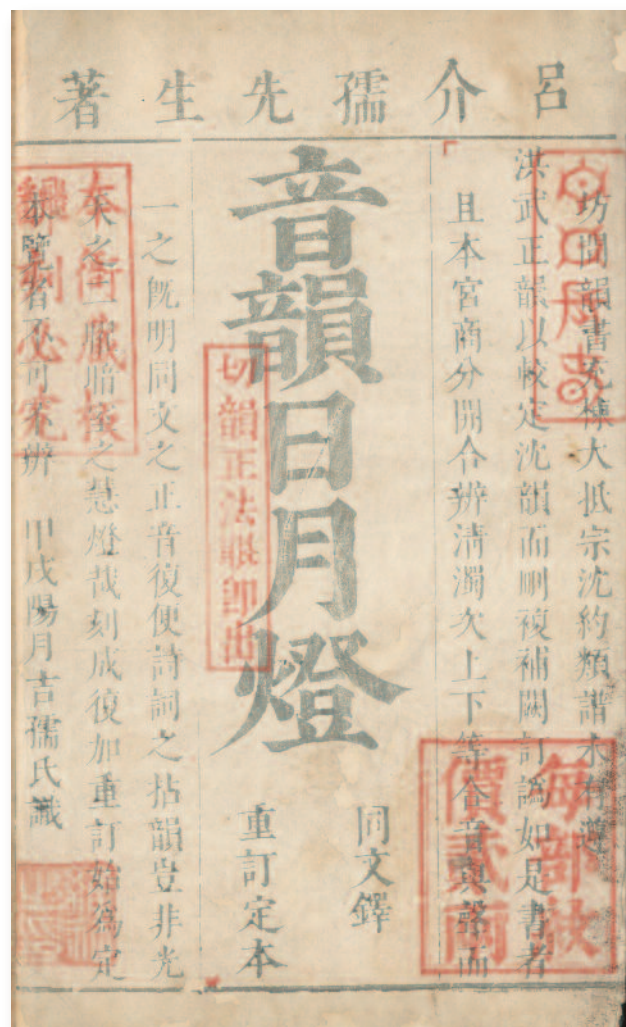 呂介孺先生著
坊間韻書充棟大抵宗沈約類譜未有遵
洪武正韻以較定沈韻而刪複補闕訂譌如是書者
且本宮商分開合辨清濁次上下等合音與聲而
音韻日月燈
同文鐸
重訂定本
一之旣明同文之正音復便詩詞之拈韻豈非光
之慧燈哉刻成復加重訂始爲定
本覽者不可不辨 甲戌陽月吉孺氏識
每部紋
價貳兩
切韻正法眼卽出
本衙藏板
翻刻必究